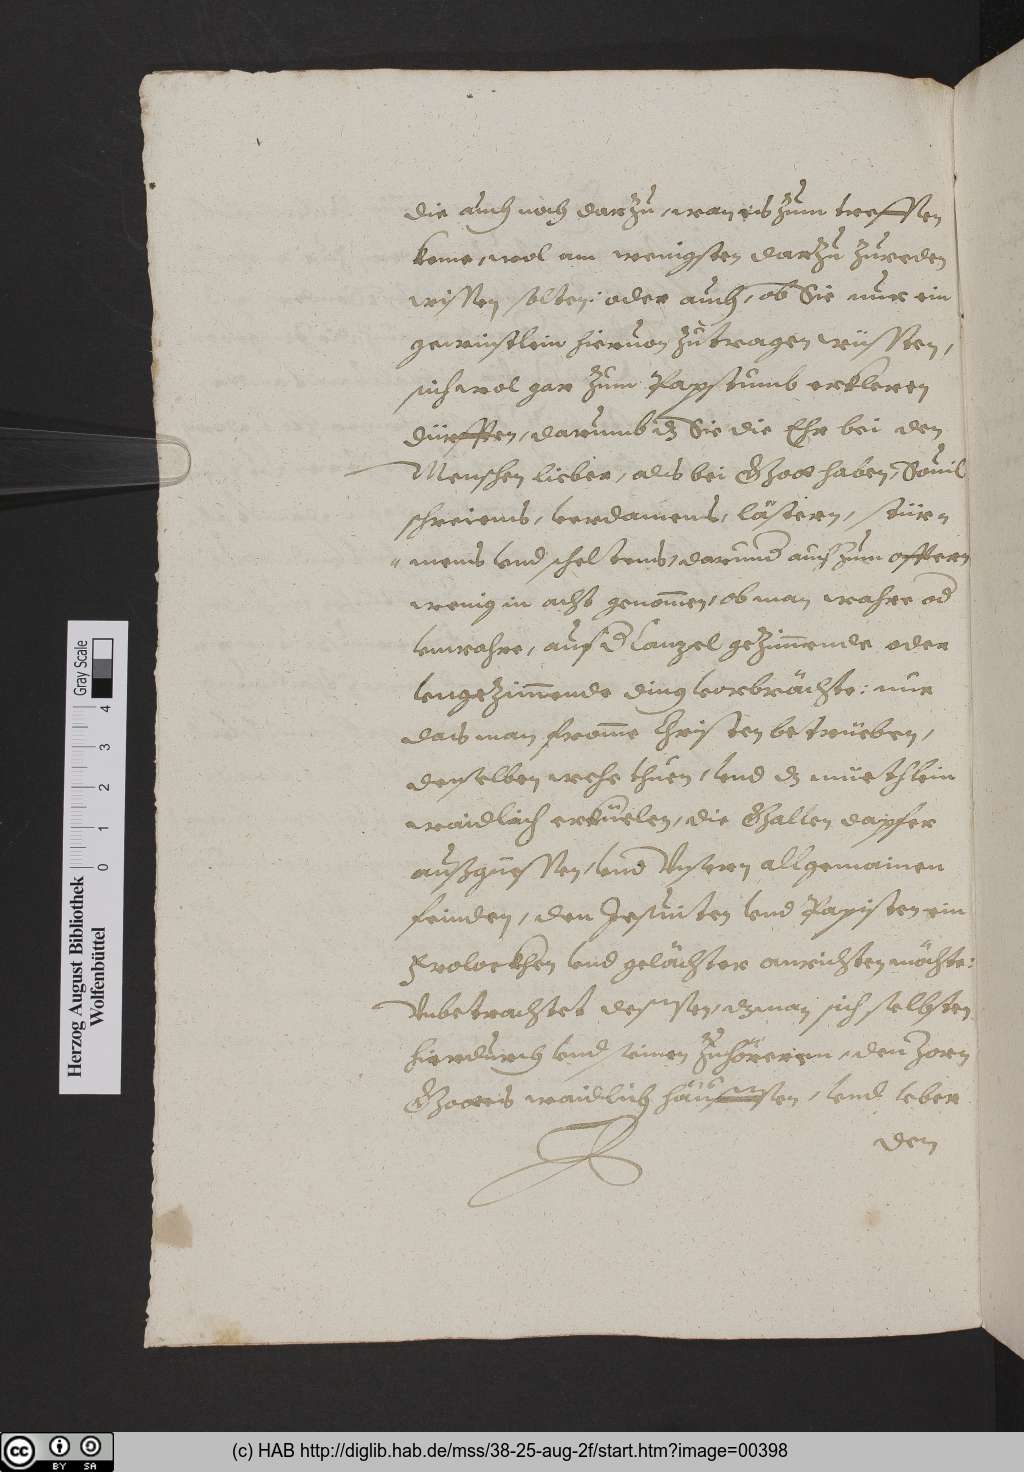 die auch noch darzu, wan es zum treffen
keme, wol am wenigsten darzu zureden
wissen solten: oder auch, ob Sie nur ein
gewinstlein hieruon zutragen wüssten,
sich wol gar zum Papstumb erkleren
dürfften, darumb dz Sie die Ehr bei den
Menschen lieber, als bei Gott haben, Souil
schreiens, verdamens, lästern, stür-
mens vnd scheltens, darund auch zum offtern
wenig in acht genom̄en, ob man wahre od
vnwahre, auf d Canzel gezim̄ende oder
vngezim̄ende ding vorbrächte: nur
das man from̄e Christen betrüeben,
denselben wehe thuen, vnd dz müethlein
waidlich erküelen, die Gallen dapfer
außgüessen, vnd Vnseren allgemainen
feinden, den Jesuiten vnd Papisten ein
Frolockhen vnd gelächter anrichten möchte:
Vnbetrachtet dessen, dz man sich selbsten
hierdurch vnd seinen Zuhörern, den Zorn
Gottes waidlich häuffen, vnd vber
den
Herzog August Bibliothek
Wolfenbüttel
Gray Scale
0 1 2 3 4
cc BY SA
(c) HAB http://diglib.hab.de/mss/38-25-aug-2f/start.htm?image=00398